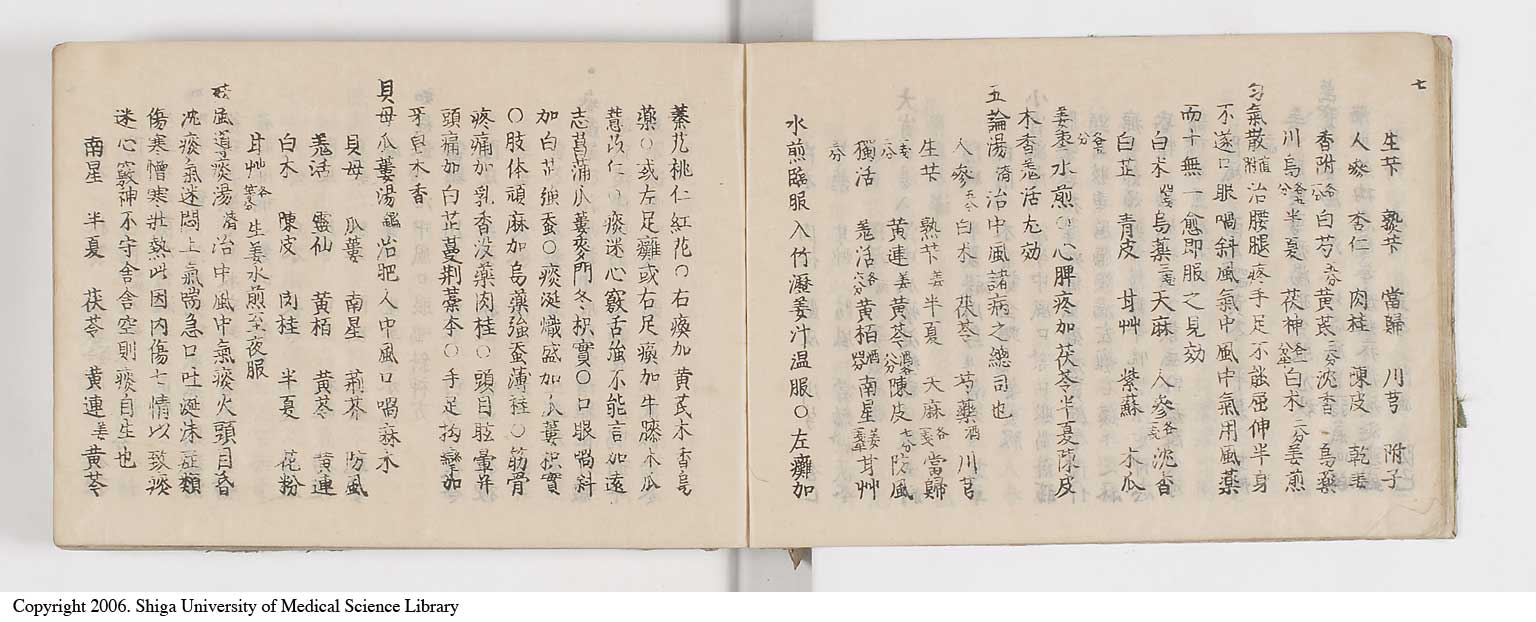 七
生芐 熟芐 當歸 川芎 附子
人參 杏仁 肉桂 陳皮 乾姜
香附 各 白芍 黄芪 二分 沈香 烏藥
川烏 各 分 半夏 茯神 各 白术 二分 姜煎
匀氣散 治腰腿疼手足不能屈伸半身
不遂口眼喎斜風氣中風中氣用風藥
而十無一愈即服之見効
白术 烏藥 天麻 人參 各 沈香
白芷 青皮 甘艸 紫蘇 木瓜 各 分
姜棗水煎〇心脾疼加茯苓半夏陳皮
木香羗活尤効
五論湯 濟 治中風諸病之緫司也
人參 白术 茯苓 芍藥 酒 川芎
生芐 熟芐 姜 半夏 天麻 各 當歸
黄連 姜 黄芩 陳皮 七分 防風
獨活 羗活 各 黄栢 酒 南星 姜 甘艸
水煎臨服入竹瀝姜汁温服〇左癱加
蓁艽桃仁紅花〇右瘓加黄芪木香烏
藥〇或左足癱或右足瘓加牛膝木瓜
薏苡仁〇痰迷心竅舌強不能言加遠
志菖蒲瓜蔞麥門冬枳實〇口眼喎斜
加白芷殭蚕〇痰涎熾盛加瓜蔞枳實
〇肢体頑麻加烏藥強蚕薄桂〇筋骨
疼痛加乳香没藥肉桂〇頭目眩暈并
頭痛加白芷蔓荆藁本〇手足拘攣加
牙皂木香
貝母瓜蔞湯 治肥人中風口喎麻木
貝母 瓜蔞 南星 荊芥 防風
羗活 靈仙 黄栢 黄芩 黄連
白术 陳皮 肉桂 半夏 花粉
甘艸 各 等分 生姜水煎至夜服
祛風導痰湯 濟 治中風中氣痰火頭目昏
沈痰氣迷悶上氣喘急口吐涎沫證類
傷寒憎寒壮熱此因内傷七情以致痰
迷心竅神不守舍舍空則痰自生也
南星 半夏 茯苓 黄連 姜 黄芩
Copyright 2006. Shiga University of Medical Science Library